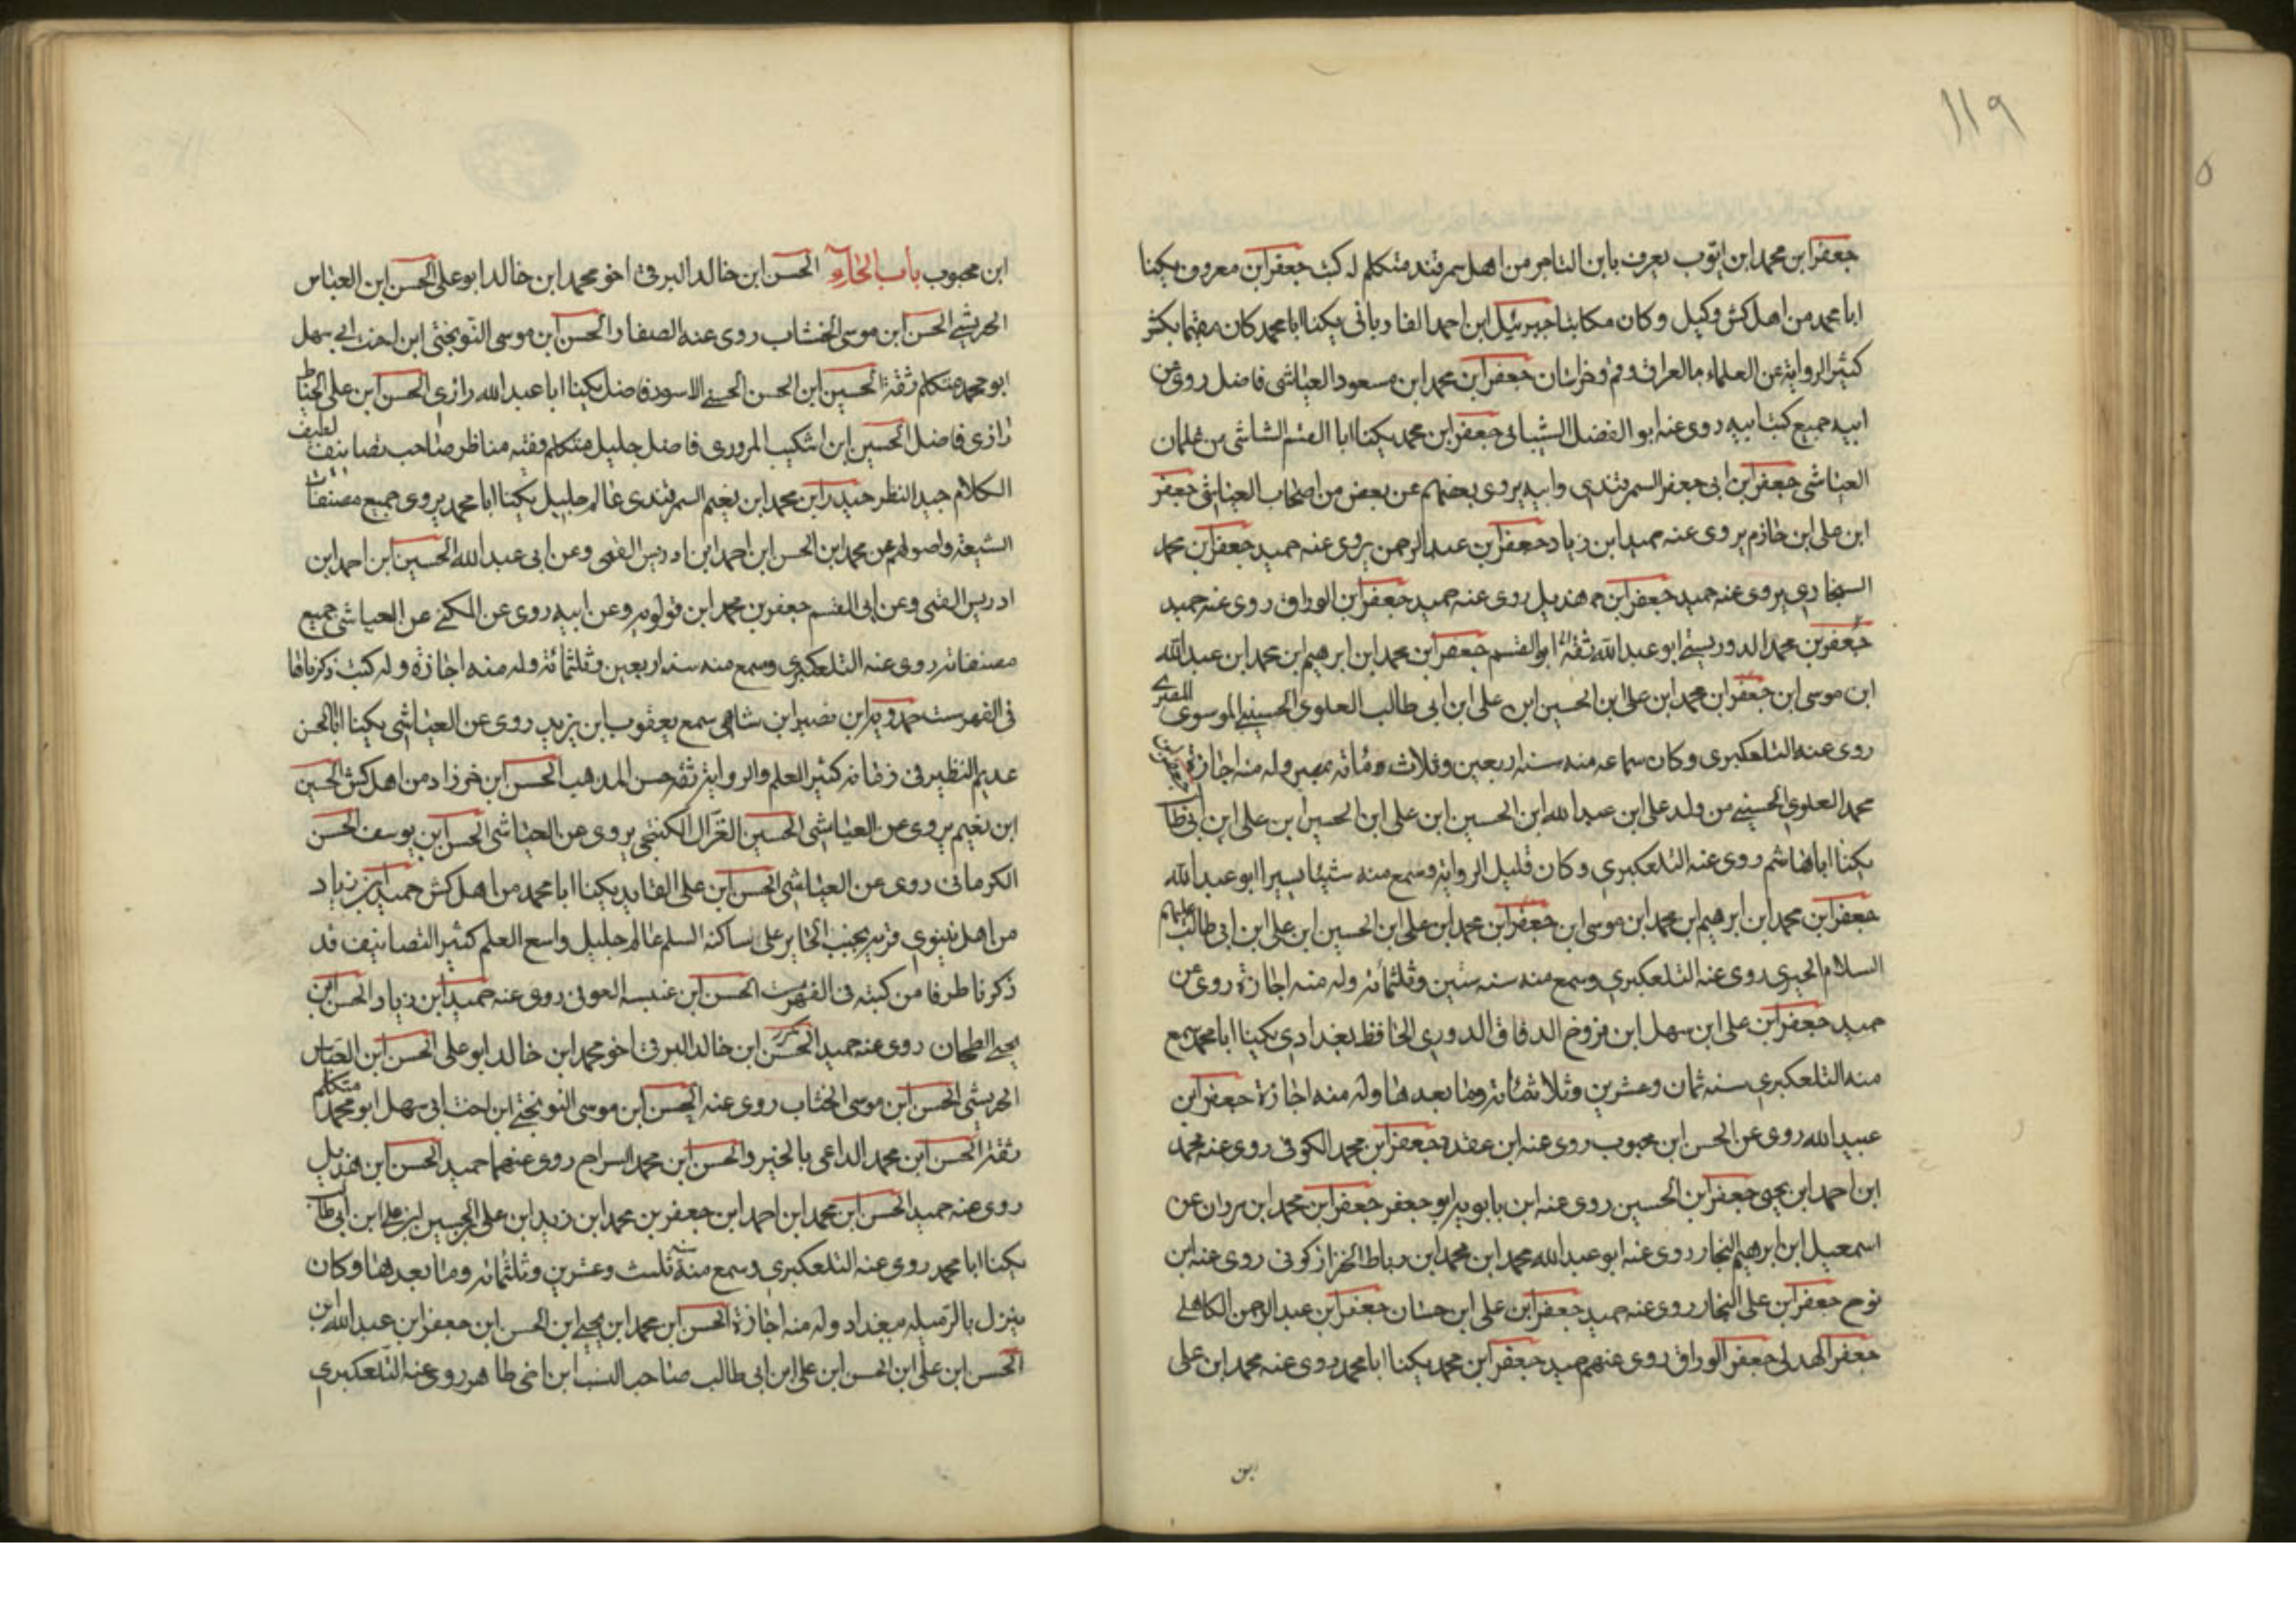 ١١٩
جعفر ابن محمد ابن ايوب يعرف بابن التاجر من اهل سمرقند متكلم له كتب جعفر ابن معروف يكنا
ابا محمد من اهل كش وكيل وكان مكاتبا جبرئيل ابن احمد الفاريابى يكنا ابا محمد كان مقيما بكش
كثير الرواية عن العلماء بالعراق وقم وخراسان جعفر ابن محمد ابن مسعود العياشى فاضل روى عن
ابيه جميع كتب ابيه روى عنه ابو الفضل الشيبانى جعفر ابن محمد يكنا ابا القسم الشاشى من غلمان
العياشى جعفر ابن ابى جعفر السمرقندى وابيه يروى بعضهم عن بعض من اصحاب العياشى جعفر
ابن على ابن خازم يروى عنه حميد ابن زياد جعفر ابن عبد الرحمن يروى عنه حميد جعفر ابن محمد
السنجارى يروى عنه حميد جعفر ابن هذيل روى عنه حميد جعفر ابن الوراق روى عنه حميد
جعفر بن محمد الدوريستى ابو عبد الله ثقة ابو القسم جعفر ابن محمد ابن ابرهيم بن محمد ابن عبد الله
ابن موسى ابن جعفر ابن محمد ابن على ابن الحسين ابن على ابن ابى طالب العلوى الحسينى الموسوى المصرى
روى عنه التلعكبرى وكان سماعه منه سنه اربعين وثلاث ومائه بمصر وله منه اجازة
محمد العلوى الحسينى من ولد على ابن عبد الله ابن الحسين ابن على ابن الحسين بن على ابن ابى طا
يكنا ابا هاشم روى عنه التلعكبرى وكان قليل الرواية وسمع منه شيئا يسيرا ابو عبد الله
جعفر ابن محمد ابن ابرهيم ابن محمد ابن موسى ابن جعفر ابن محمد ابن على ابن الحسين ابن على ابن ابى طالب عليهم
السلام الحيرى روى عنه التلعكبرى وسمع منه سنه ستين وثلثمائه وله منه اجازة روى عن
حميد جعفر ابن على ابن سهل ابن فروخ الدقاق الدورى الحافظ بغدادى يكنا ابا محمد سمع
منه التلعكبرى سنه ثمان وعشرين وثلاثمائه وما بعدها وله منه اجازة جعفر ابن
عبيد الله روى عن الحسن ابن محبوب روى عنه ابن عقده جعفر ابن محمد الكوفى روى عنه محمد
ابن احمد ابن يحيى جعفر ابن الحسين روى عنه ابن بابويه ابو جعفر جعفر ابن محمد ابن مروان عن
اسمعيل ابن ابرهيم النجار روى عنه ابو عبد الله محمد ابن محمد ابن رباط الخزاز كوفى روى عنه ابن
نوح جعفر ابن على النجار روى عنه حميد جعفر ابن على ابن حسان جعفر ابن عبد الرحمن الكاهلى
جعفر الهدلى جعفر الوراق روى عنهم حميد جعفر ابن محمد يكنا ابا محمد روى عنه محمد ابن على
ابن
ابن محبوب باب الحاء الحسن ابن خالد البرقى اخو محمد ابن خالد ابو على الحسن ابن العباس
الحريشى الحسن ابن موسى الخشاب روى عنه الصفار الحسن ابن موسى النوبختى ابن اخت ابى سهل
ابو محمد متكلم ثقة الحسين ابن الحسن الحسنى الاسود فاضل يكنا ابا عبد الله رازى الحسن ابن على الحناط
رازى فاضل الحسين ابن اشكيب المروزى فاضل جليل متكلم فقيه مناظر صاحب تصانيف لطيف
الكلام جيد النظر حيدر ابن محمد ابن نعيم السمرقندى عالم جليل يكنا ابا محمد يروى جميع مصنفات
الشيعه واصولهم عن محمد ابن الحسن ابن احمد ابن ادريس القمى وعن ابى عبد الله الحسين ابن احمد ابن
ادريس القمى وعن ابى القسم جعفر بن محمد ابن قولويه وعن ابيه روى عن الكشى عن العياشى جميع
مصنفاته روى عنه التلعكبرى وسمع منه سنه اربعين وثلثمائه وله منه اجازة وله كتب ذكرناها
فى الفهرست حمدويه ابن نصير ابن شاهى سمع يعقوب ابن يزيد روى عن العياشى يكنا ابا الحسن
عديم النظير فى زمانه كثير العلم والرواية ثقه حسن المذهب الحسن ابن خرزاد من اهل كش الحسين
ابن نعيم يروى عن العياشى الحسين الغزال الكنتجى يروى عن العياشى الحسن ابن يوسف الحسن
الكرمانى روى عن العياشى الحسن ابن على القايد يكنا ابا محمد من اهل كش حميد ابن زياد
من اهل نينوى قريه بجنب الحاير على ساكنه السلم عالم جليل واسع العلم كثير التصانيف قد
ذكرنا طرفا من كتبه فى الفهرست الحسن ابن عنبسه الصوفى روى عنه حميد ابن زياد الحسن ابن
يحيى الطحان روى عنه حميد الحسن ابن خالد البرقى اخو محمد ابن خالد ابو على الحسن ابن العباس
الحريشى الحسن ابن موسى الخشاب روى عنه الحسن ابن موسى النوبختى ابن اخت ابى سهل ابو محمد متكلم
ثقة الحسن ابن محمد الداعى بالخير والحسن ابن محمد السراج روى عنهما حميد الحسن ابن هذيل
روى عنه حميد الحسن ابن محمد ابن احمد ابن جعفر بن محمد ابن زيد ابن على الحسين ابن على ابن ابى طا
يكنا ابا محمد روى عنه التلعكبرى وسمع منه سنه ثلث وعشرين وثلثمائه وما بعدها وكان
ينزل بالرميله ببغداد وله منه اجازة الحسن ابن محمد ابن يحيى ابن الحسن ابن جعفر ابن عبد الله ابن
الحسن ابن على ابن الحسن ابن على ابن ابى طالب صاحب النسب ابن اخى طاهر روى عنه التلعكبرى